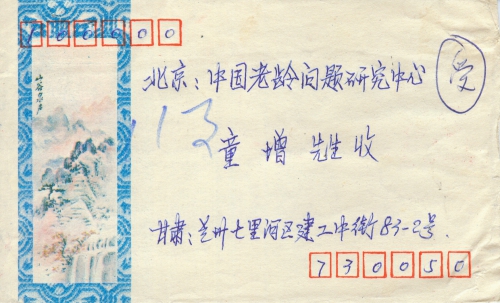 100000
北京：中国老龄问题研究中心
受
113
童增 先生 收
甘肃：兰州七里河区建工中街83-2号
730050